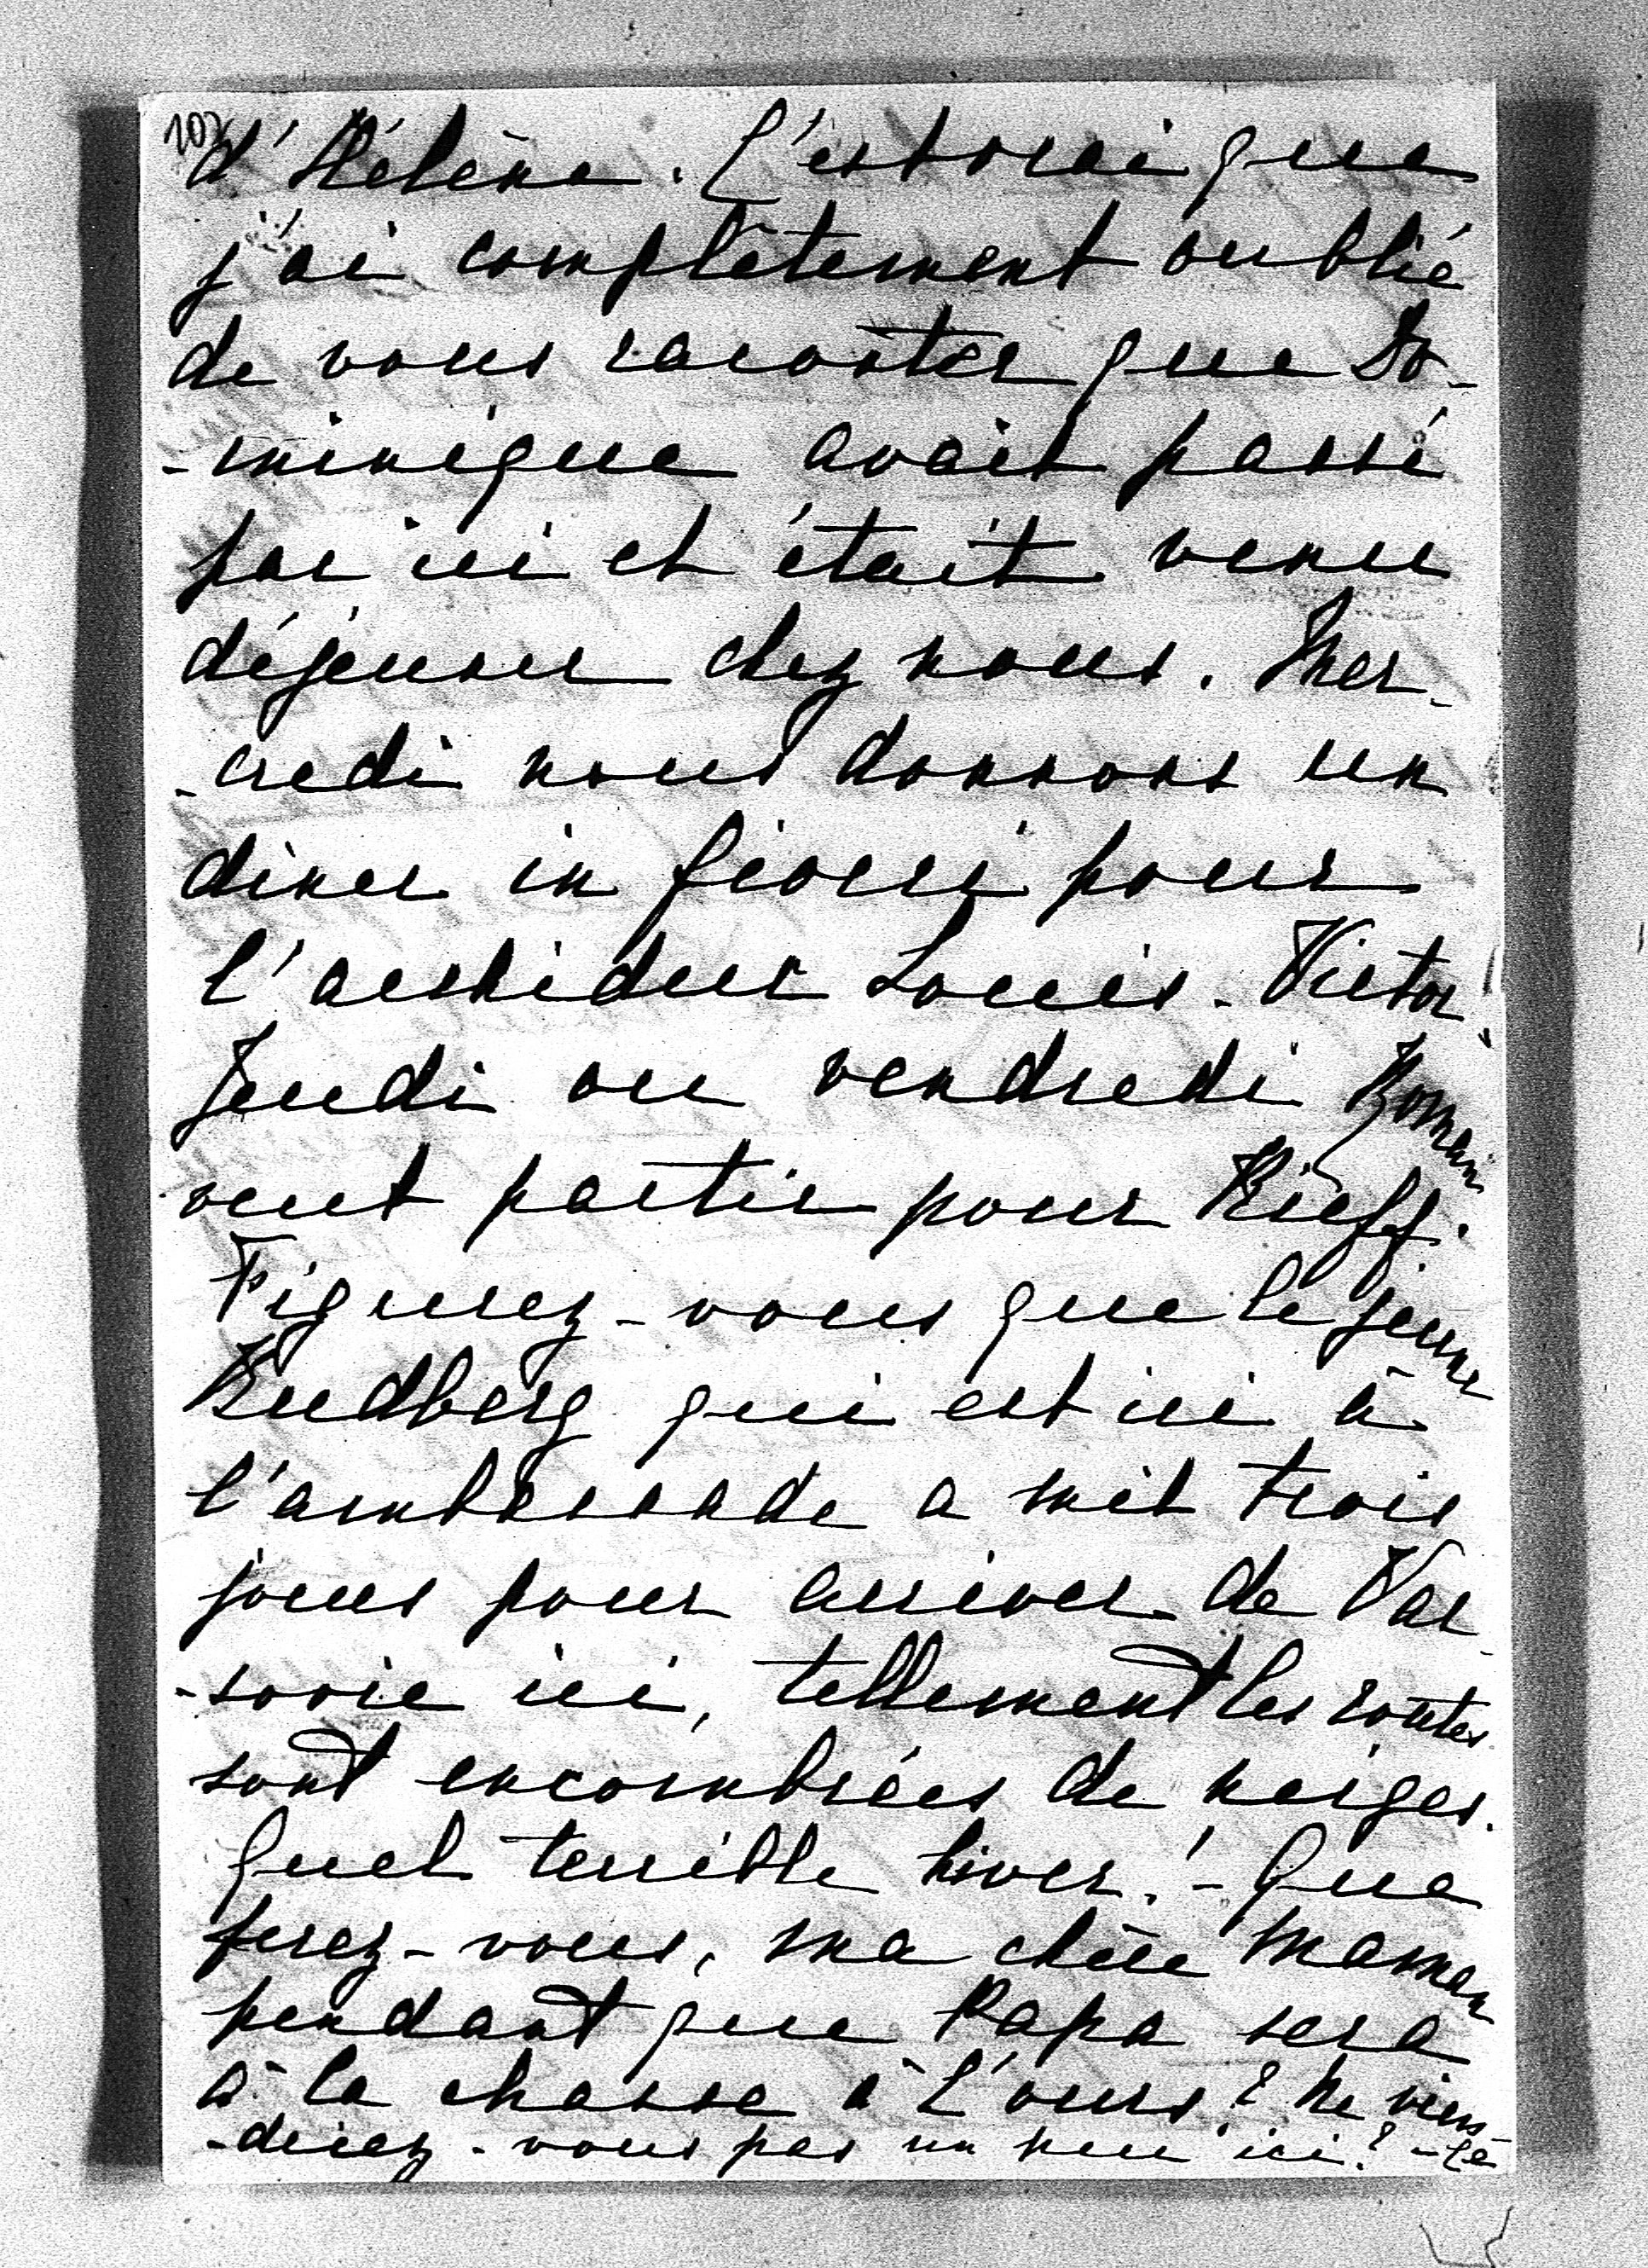 107
d'Hélène. C'est vrai que
j'ai complètement oublié
de vous raconter que Do-
-minique avait passé
par ici et était venu
déjeuner chez nous. Mer-
-credi nous donnons un
diner in fiocchi pour
l'archiduc Louis-Victor.
Jeudi ou vendredi Romain
veut partir pour Kieff.
Figurez-vous que le jeune
Budberg qui est ici à
l'ambassade a mit trois
jours pour arriver de Var-
-sovie ici, tellement les routes
sont encombrées de neiges.
Quel terrible hiver! - Que
ferez-vous, ma chère Maman
pendant que Papa sera
à la chasse à l'ours? Ne vien-
-drez-vous pas un peu ici? - Ce